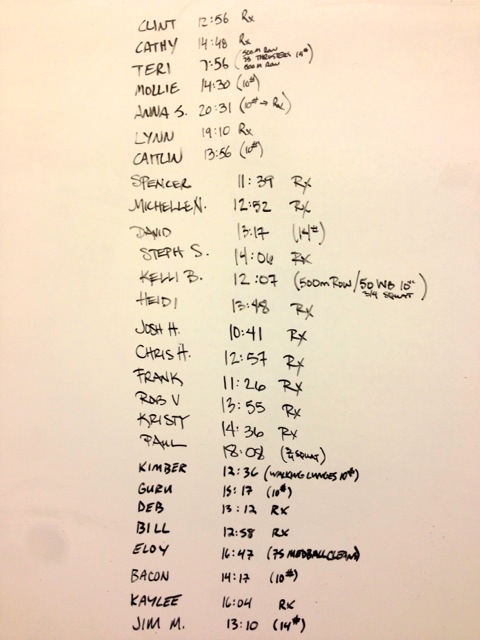 CLINT 12:56 Rx
CATHY 14:48 Rx
TERI 7:56 (500M ROW
75 THRUSTERS 15#
500M ROW)
MOLLIE 14:30 (10#)
ANNA S. 20:31 (10# → Rx)
LYNN 19:10 Rx
CAITLIN 13:56 (10#)
SPENCER 11:39 Rx
MICHELLE N. 12:52 Rx
DAVID 13:17 (14#)
STEPH S. 14:06 Rx
KELLI B. 12:07 (500M ROW/50 WB 10#
3/4 SQUAT)
HEIDI 13:48 Rx
JOSH H. 10:41 Rx
CHRIS H. 12:57 Rx
FRANK 11:26 Rx
ROB V 13:55 Rx
KRISTY 14:36 Rx
PAUL 18:08 (3/4 SQUAT)
KIMBER 12:36 (WALKING LUNGES 10#)
GURU 15:17 (10#)
DEB 13:12 RX
BILL 12:58 Rx
ELOY 16:47 (75 MEDBALL CLEANS)
BACON 14:17 (10#)
KAYLEE 16:04 RX
JIM M. 13:10 (14#)